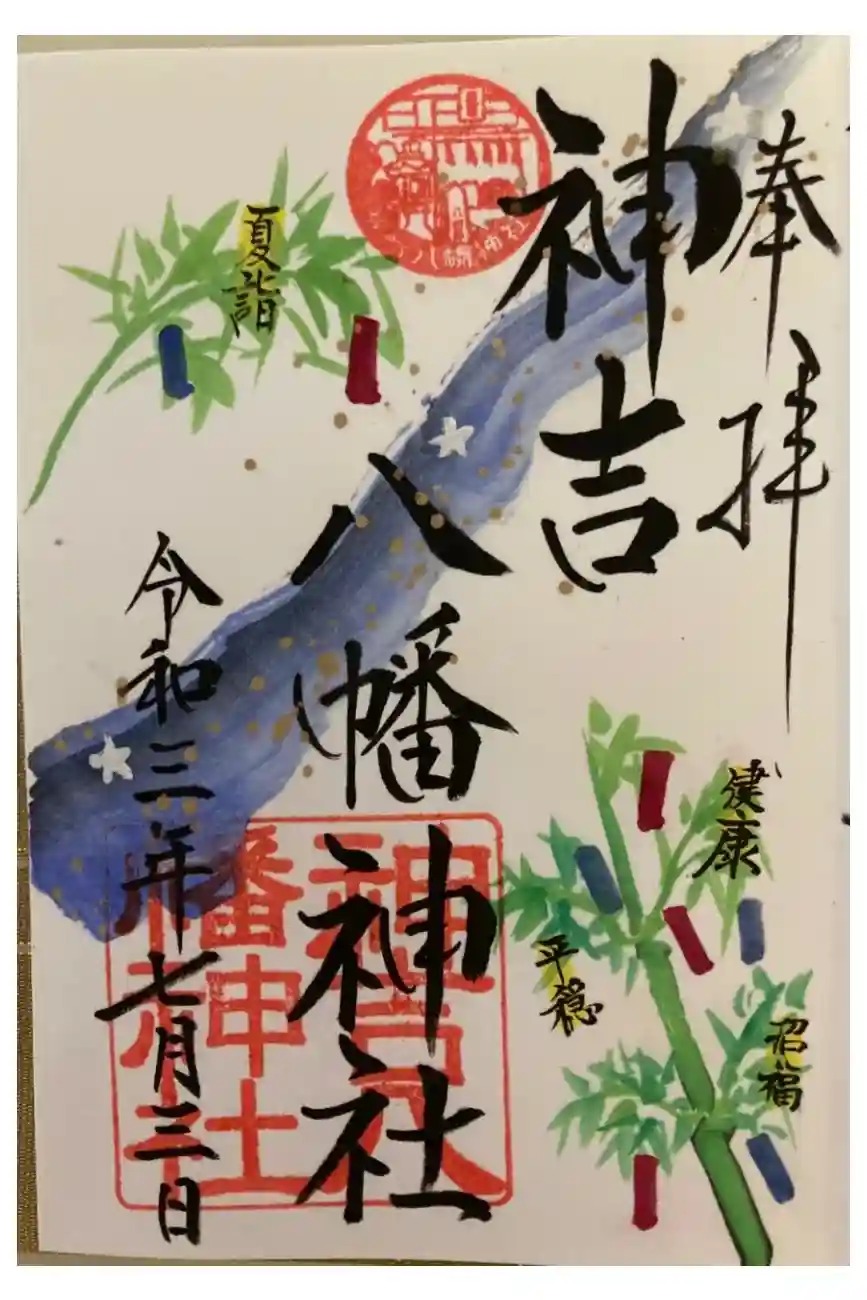 奉拝
神吉
八幡神社
令和三年七月三日
夏詣
健康
平穏
招福
神吉八幡神社